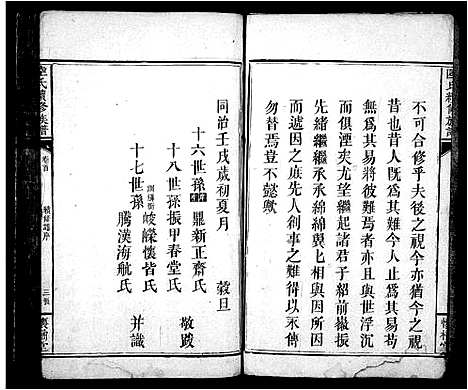 不可合修乎夫後之視今亦猶今之視
昔也昔人既已為其難今人止為其易苟
無為其易將彼難焉者亦且與世浮沉
而俱湮矣尤望繼起諸君子紹前嶽振
先緒繼繼承承綿綿翼翼匕相與因所因
而遞因之庶先人創事之難得以永傳
勿替焉豈不懿歟
同治壬戌歲初夏月 穀旦
十六世孫 鼎新正齋氏
十八世孫振甲春堂氏 敬跋
峻嶸懷皆氏
十七世孫
騰漢海航氏 并識
氏續修族譜
卷首 續修譜序 三